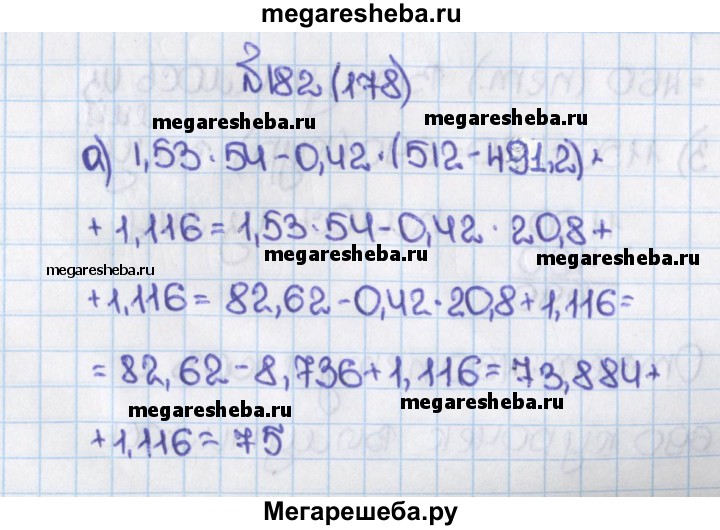 megaresheba.ru
№182 (178)
megaresheba.ru megaresheba.ru
а) 1,53·54-0,42·(512-491,2)+
+1,116=1,53·54-0,42·20,8+
megaresheba.ru megaresheba.ru megaresheba.ru
+1,116=82,62-0,42·20,8+1,116=
=82,62-8,736+1,116=73,884+
megaresheba.ru megaresheba.ru
+1,116=75
Мегарешеба.ру